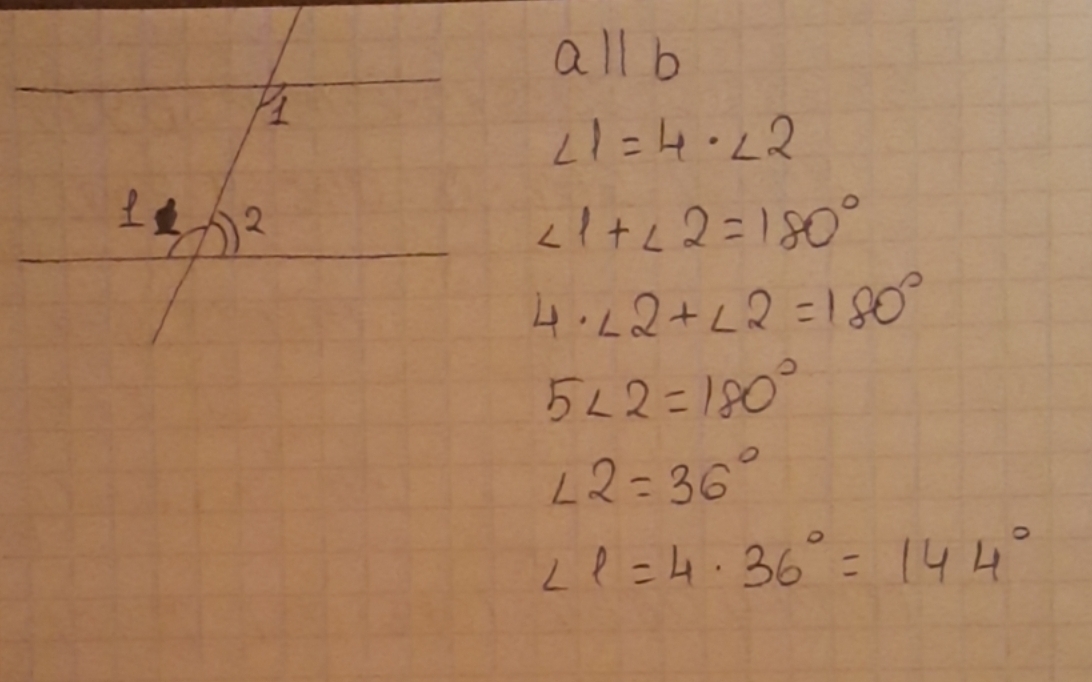 a || b
∠1 = 4 · ∠2
∠1 + ∠2 = 180°
4 · ∠2 + ∠2 = 180°
5∠2 = 180°
∠2 = 36°
∠1 = 4 · 36° = 144°
1
1 2